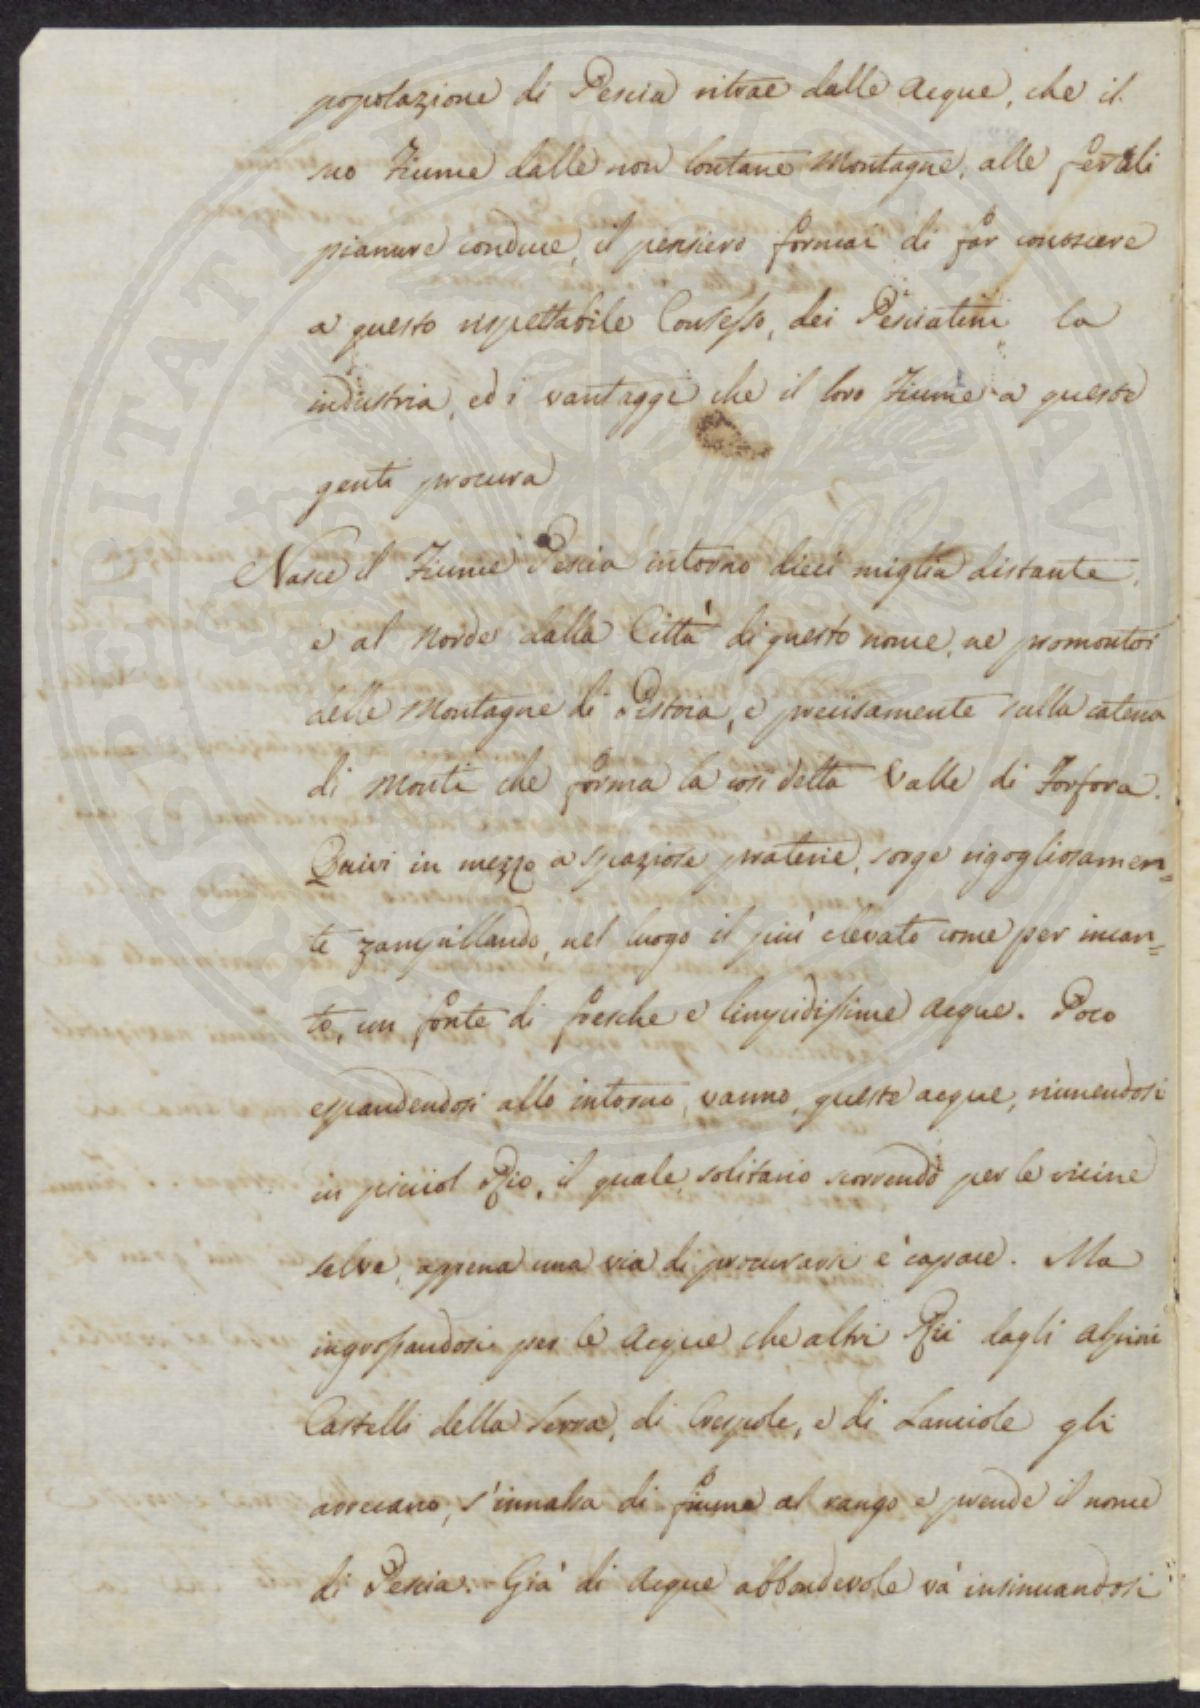 popolazione di Pescia ritrae dalle Acque, che il
suo Fiume dalle non lontane Montagne, alle fertili
pianure conduce, il pensiero formai di far conoscere
a questo rispettabile Consesso, dei Pesciatini la
industria, ed i vantaggi che il loro Fiume a queste
genti procura
Nasce il Fiume Pescia intorno dieci miglia distante,
e al Norde dalla Città di questo nome, ne promontori
delle Montagne di Pistoia, e precisamente sulla catena
di Monti che forma la così detta Valle di Forfora.
Quivi in mezzo a spaziose praterie, sorge rigogliosamen=
te zampillando, nel luogo il più elevato come per incan=
to, un fonte di fresche e limpidissime Acque. Poco
espandendosi allo intorno, vanno, queste acque, riunendosi
in picciol Rio, il quale solitario scorrendo per le vicine
selve, appena una via di procurarsi è capace. Ma
ingrossandosi per le Acque che altri Rii dagli alpini
Castelli della Serra, di Crespole, e di Lanciole gli
arrecano, s'innalza di fiume al rango e prende il nome
di Pescia. Già di Acque abbondevole và insinuandosi
PROSPERITATI PUBLICAE AUGENDAE